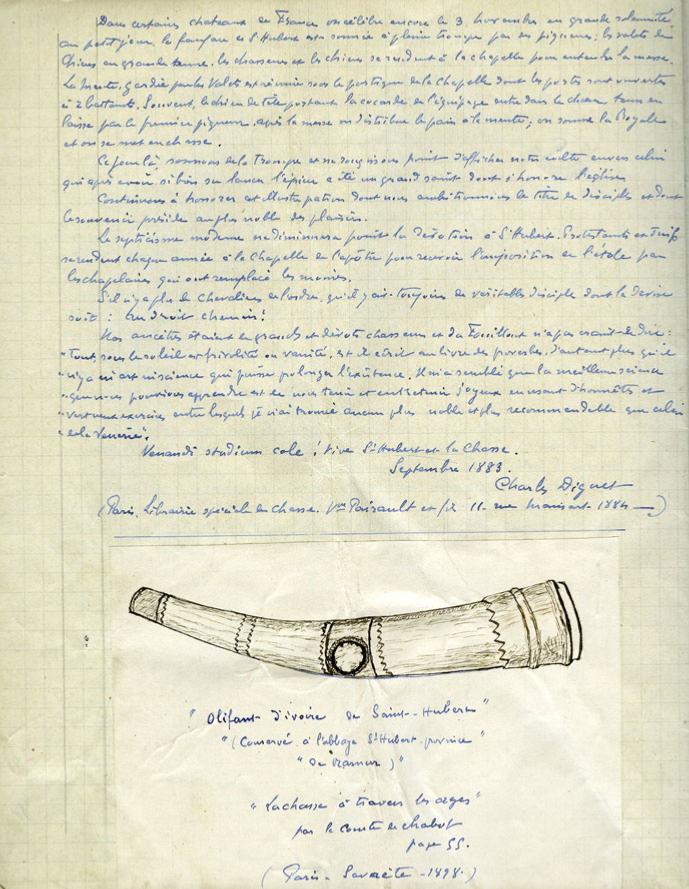 Dans certains chateaux de France on célèbre encore le 3 novembre en grande solennité
au petit jour la fanfare de St Hubert est sonnée à pleine trompe par les piqueurs; les valets de
chiens en grande tenue, les chasseurs et les chiens se rendent à la chapelle pour entendre la messe.
La Meute, gardée par les Valets est réunie sous le portique de la Chapelle dont les portes sont ouvertes
à 2 battants. Souvent, le chien de tête portant la cocarde de l'équipage entre dans le chœur tenu en
laisse par le premier piqueur, après la messe on distribue le pain à la meute; on sonne la Royale
et on se met en chasse.
Ce jour là, sonnons de la Trompe et ne rougissons point d'afficher notre culte envers celui
qui après avoir si bien su lancer l'épieu a été un grand saint dont s'honore l'église.
Continuons à honorer cet illustre patron dont nous ambitionnons le titre de disciples et dont
le souvenir préside au plus noble des plaisirs.
Le septicisme moderne ne diminuera point la dévotion à St Hubert. Protestants et Juifs
se rendent chaque année à la Chapelle de l'apôtre pour recevoir l'imposition de l'étole par
les chapelains qui ont remplacé les moines.
S'il n'y a plus de Chevaliers de l'ordre, qu'il y ait toujours de véritables disciples dont la devise
soit : au droit chemin!
Nos ancêtres étaient de grands et dévots chasseurs et du Fouilloux n'a pas craint de dire:
"Tout, sous le soleil est frivolité ou vanité, est il écrit au livre des proverbes, d'autant plus qu'il
"n'y a ni art ni science qui puisse prolonger l'existence. Il m'a semblé que la meilleure science
"que nous pouvions apprendre est de nous tenir et entretenir joyeux en usant d'honnêtes et
"vertueux exercices entre lesquels je n'ai trouvé aucun plus noble et plus recommandable que celui
"de la Venerie".
Venandi studium cole ! Vive St Hubert et la Chasse.
Septembre 1883.
Charles Diguet
(Paris, Librairie spéciale de Chasse. Vve Pairault et fils 11 rue Mansart 1884 —)
"Olifant d'ivoire de Saint-Hubert"
"(Conservé à l'abbaye St Hubert province"
"de Namur)"
"La chasse à travers les ages"
par le Comte de Chabot
page 55.
(Paris - Savaète - 1898.)